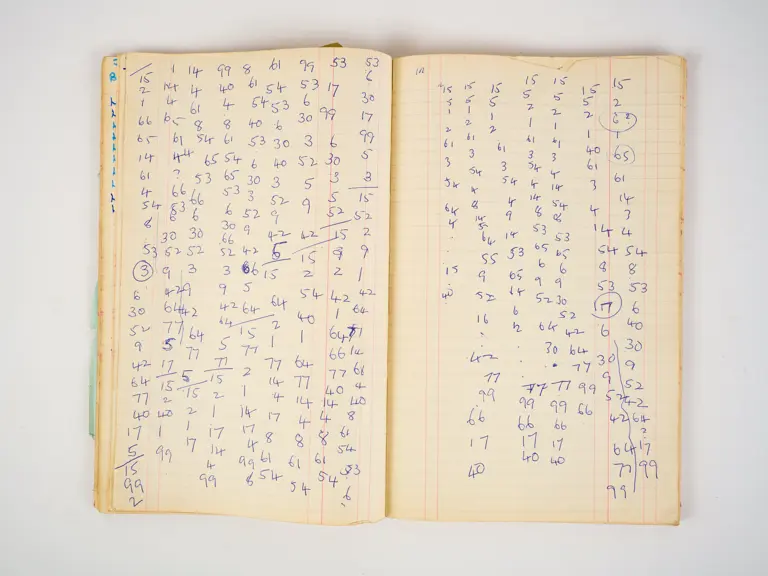 1 14 99 8 61 99 53 53
15 14 4 40 61 54 53 17 6
2 4 61 4 54 53 6 30
1 65 8 8 40 6 30 99 17
66 61 54 61 53 30 3 6 99
65 44 65 54 6 40 52 30 5
14 ? 53 65 30 3 5 3 3
61 66 53 3 52 9 5 15
4 53 66 6 52 9 52 52
54 6 6 30 9 42 42 15 2
8 30 30 66 42 5 15 9 9
53 52 52 52 42
3 9 3 3 66 15 2 2 1
6 42 9 9 5 54 42 42
30 64 42 42 64 64 1 64
52 77 64 64 15 2 40 64 71
9 5 77 5 77 1 1 66 14
42 17 77 2 77 64 77 66
64 15 5 15 2 14 77 40 4
77 2 15 2 1 4 14 14 40
40 40 2 1 14 17 4 4 8
17 1 1 17 17 8 8 8 61
5 99 17 14 4 61 61 54
15 4 99 54 54 53
99 99 6 54 6
2
15 15 15 15 15 15 15
5 5 5 5 5 5 2
1 1 1 2 2 2 6?
2 2 2 1 1 1 1
61 61 61 61 61 40 65
3 3 3 3 3 61 61
54 54 54 54 4 3 14
64 4 4 14 54 4 3
8 14 9 8 8 14 4
64 14 53 53 54 54
55 53 65 65 8 8
15 9 65 6 6 53 53
40 52 14 9 9 17 6
16 52 30 52 6 40
2 64 42 30
42 30 64 30 9
77 77 9 52
99 77 77 99 52 42
66 99 99 66 42 64
17 66 66 ?
40 17 17 64 17
40 40 77 99
99